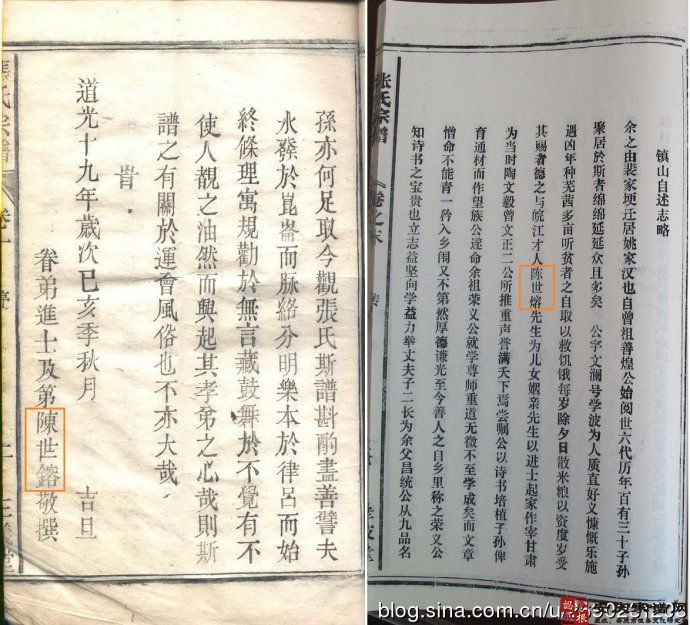 孫亦何足取今觀張氏斯譜斟酌盡善譬夫
水發於崑崙而脈絡分明樂本於律呂而始
終條理寓規勸於無言藏鼓舞於不覺有不
使人覩之油然而興起其孝弟之心哉則斯
譜之有關於運會風俗也不亦大哉
旹
道光十九年歲次巳亥季秋月 吉旦
眷弟進士及第陳世鎔敬撰
張氏宗譜 卷一 序
镇山自述志略
余之由裴家埂迁居姚家汉也自曾祖善煌公始阅世六代历年百有三十子孙
聚居於斯者绵绵延延众且多矣 公字文澜号学波为人质直好义慷慨乐施
遇凶年种芜荠多亩听贫者之自取以救饥饿每岁除夕日散米粮以资度岁受
其赐者德之与皖江才人陈世熔先生为儿女姻亲先生以进士起家作宰甘肃
为当时陶文毅曾文正二公所推重声誉满天下焉尝嘱公以诗书培植子孙俾
育通材而作望族公遂命余祖荣义公就学尊师重道无微不至学成矣而文章
憎命不能青一矜入乡闱又不第然厚德谦光至今善人之目乡里称之荣义公
知诗书之宝贵也立志益坚向学益力举丈夫子二长为余父昌统公从九品名
张氏宗谱 卷之末
blog.sina.com.cn/u/